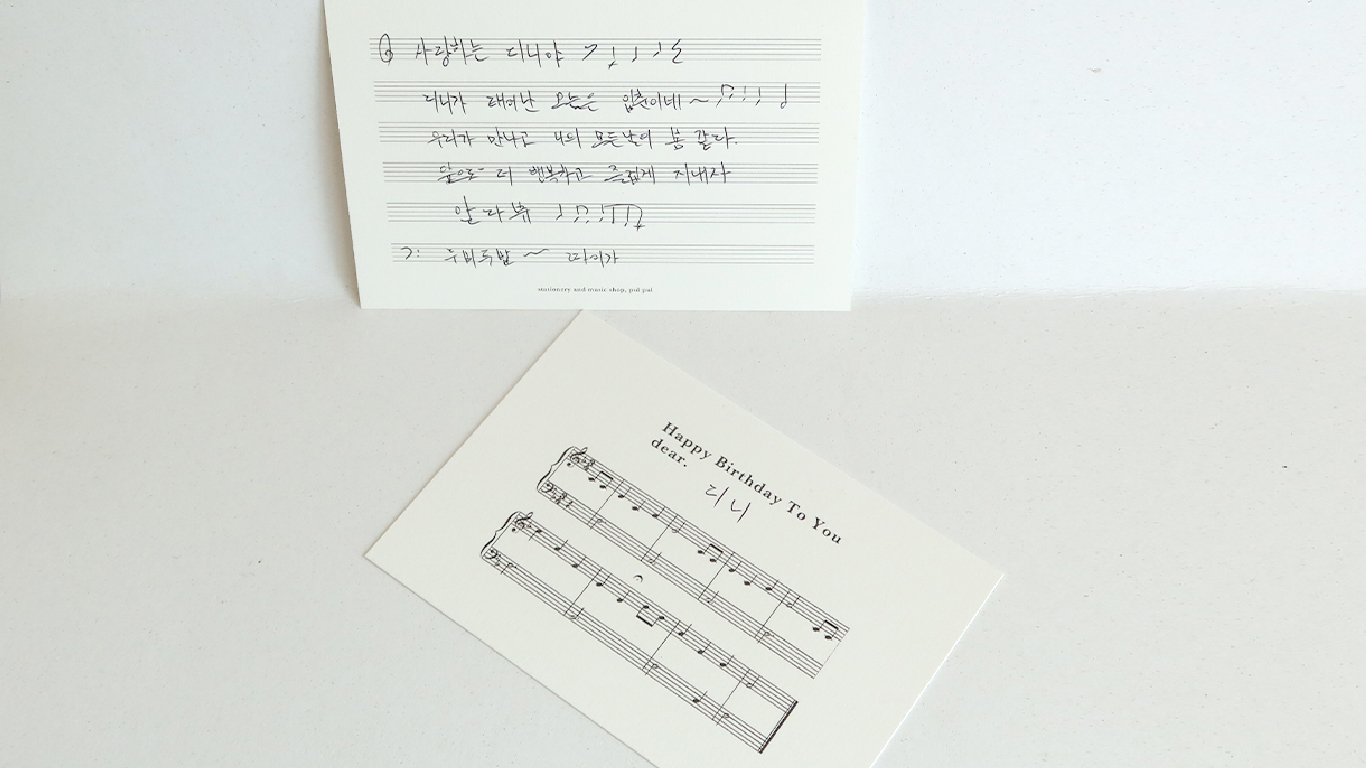 사랑하는 디니야
디니가 태어난 오늘은 입춘이네~
우리가 만나고 나의 모든날이 봄 같다.
앞으로 더 행복하고 즐겁게 지내자
알라뷰
두비두밥~ 따이가
stationery and music shop, pul pul
Happy Birthday To You
dear.
디니